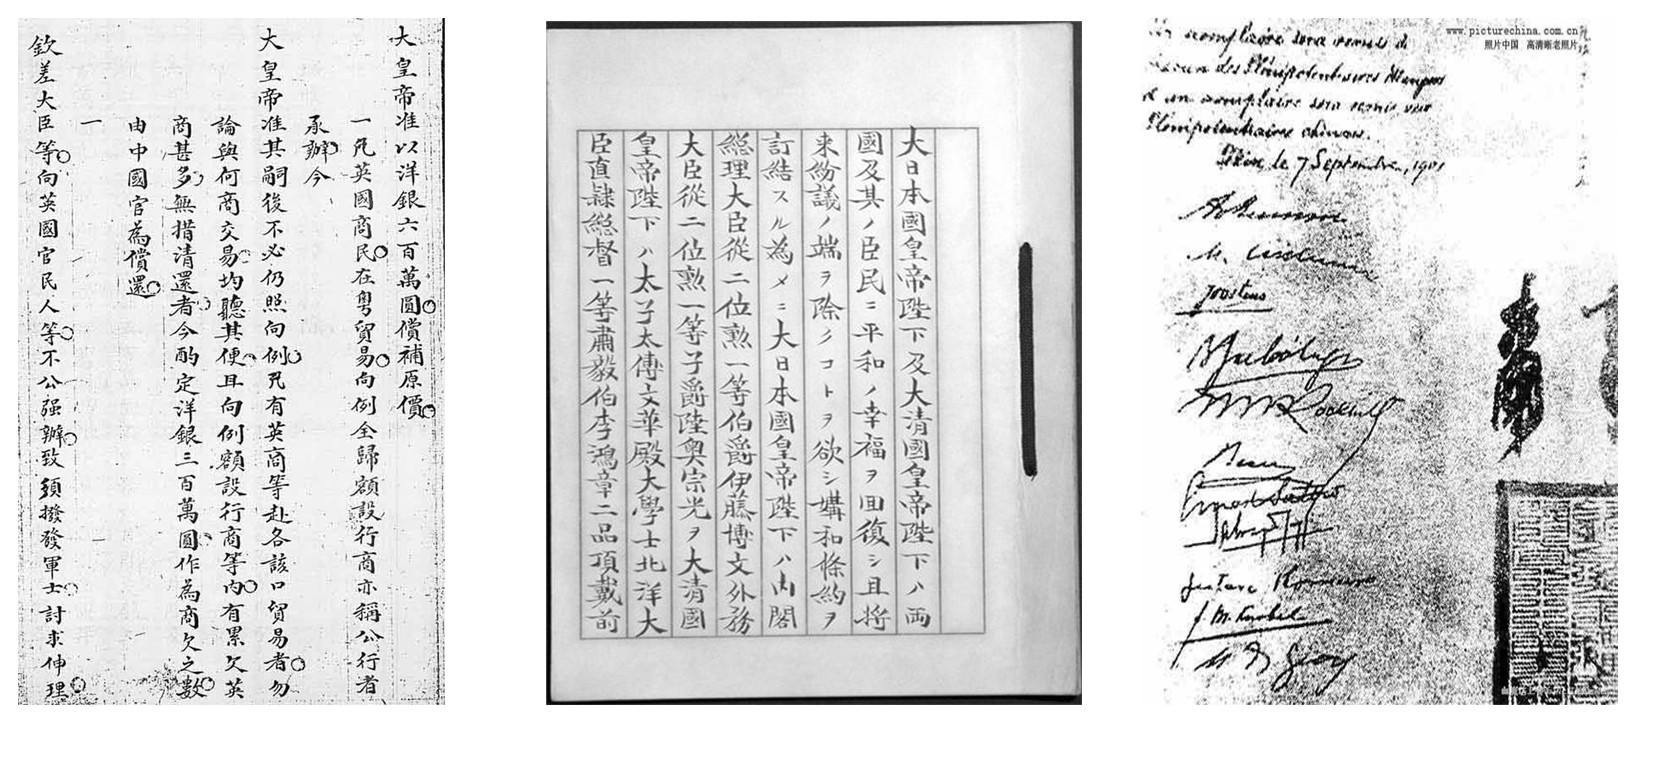 大皇帝准以洋銀六百萬圓償補原價
一凡英國商民在粵貿易向例全歸額設行商亦稱公行者
承辦今
大皇帝准其嗣後不必仍照向例凡有英商等赴各該口貿易者勿
論與何商交易均聽其便且向例額設行商等內有累欠英
商甚多無措清還者今酌定洋銀三百萬圓作為商欠之數
由中國官為償還
一
欽差大臣等向英國官民人等不公强辦致須撥發軍士討求伸理
大日本國皇帝陛下及大清國皇帝陛下ハ両
國及其ノ臣民ニ平和ノ幸福ヲ囬復シ且將
來紛議ノ端ヲ除クコトヲ欲シ媾和條約ヲ
訂結スル為メニ大日本國皇帝陛下ハ內閣
總理大臣從二位勲一等伯爵伊藤博文外務
大臣從二位勲一等子爵陸奥宗光ヲ大清國
皇帝陛下ハ太子太傅文華殿大學士北洋大
臣直隷總督一等肅毅伯李鴻章二品頂戴前
www.picturechina.com.cn
照片中国 高清晰老照片
exemplaire sera remis à
des Plénipotentiaires étrangers
un exemplaire sera remis aux
Plénipotentiaires chinois.
Pékin, le 7 Septembre, 1901
Joostens
Ernest Satow